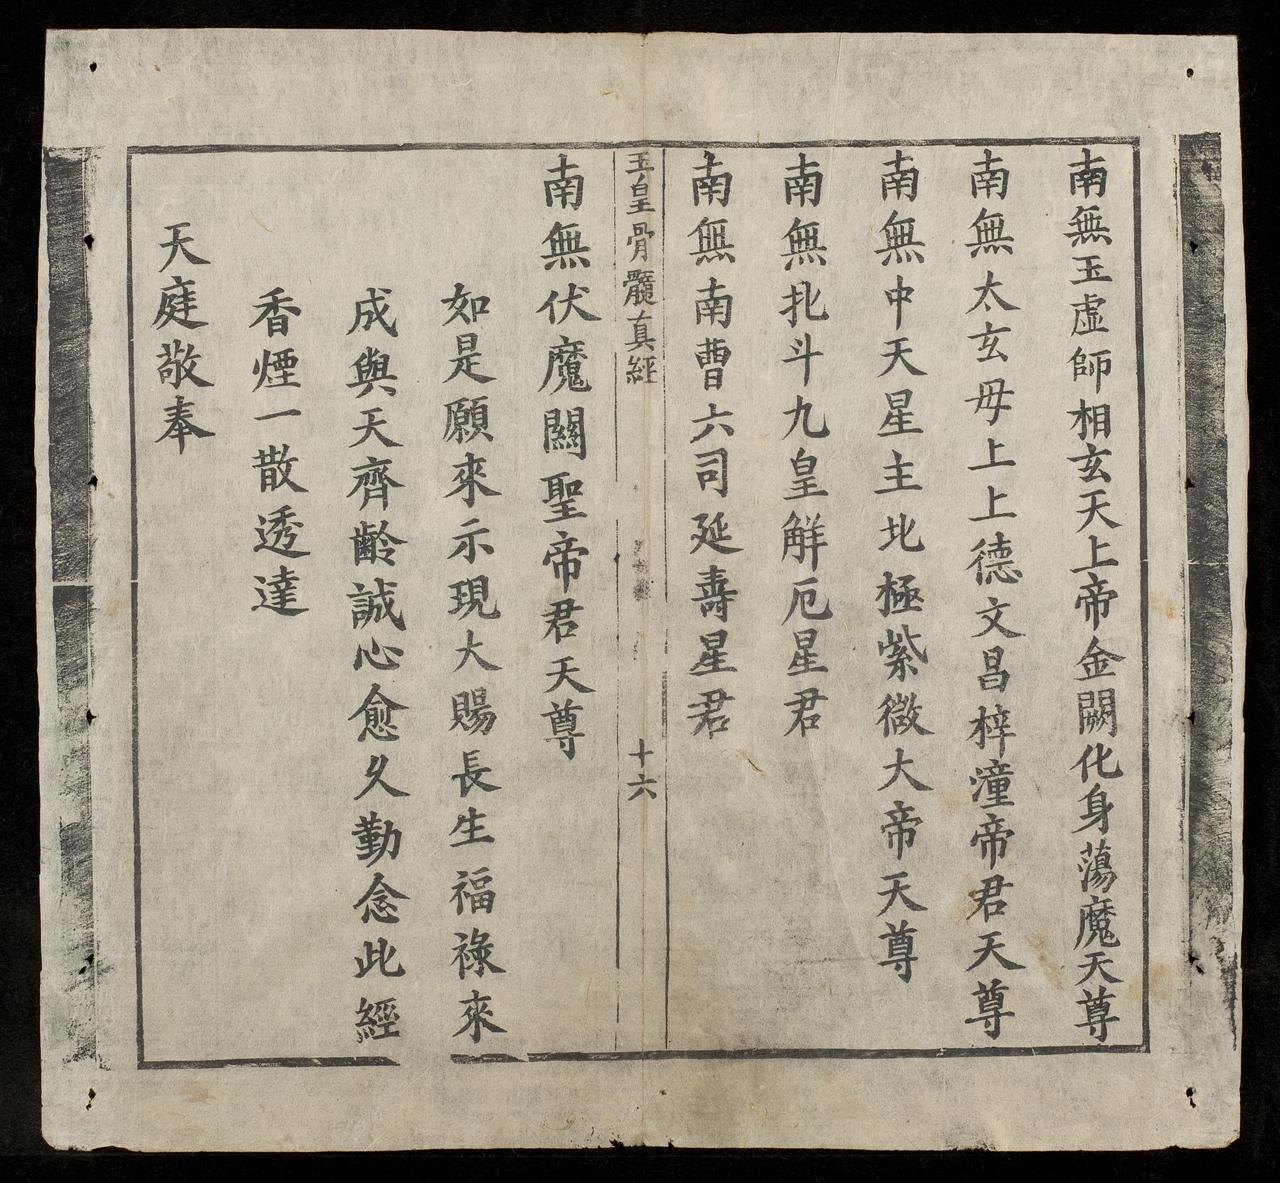 南無玉虛師相玄天上帝金闕化身蕩魔天尊
南無太玄毋上上德文昌梓潼帝君天尊
南無中天星主北極紫微大帝天尊
南無北斗九皇解厄星君
南無南曹六司延壽星君
玉皇骨髓真經
十六
南無伏魔關聖帝君天尊
如是願來示現大賜長生福祿來
成與天齊齡誠心愈久勤念此經
香煙一散透達
天庭敬奉